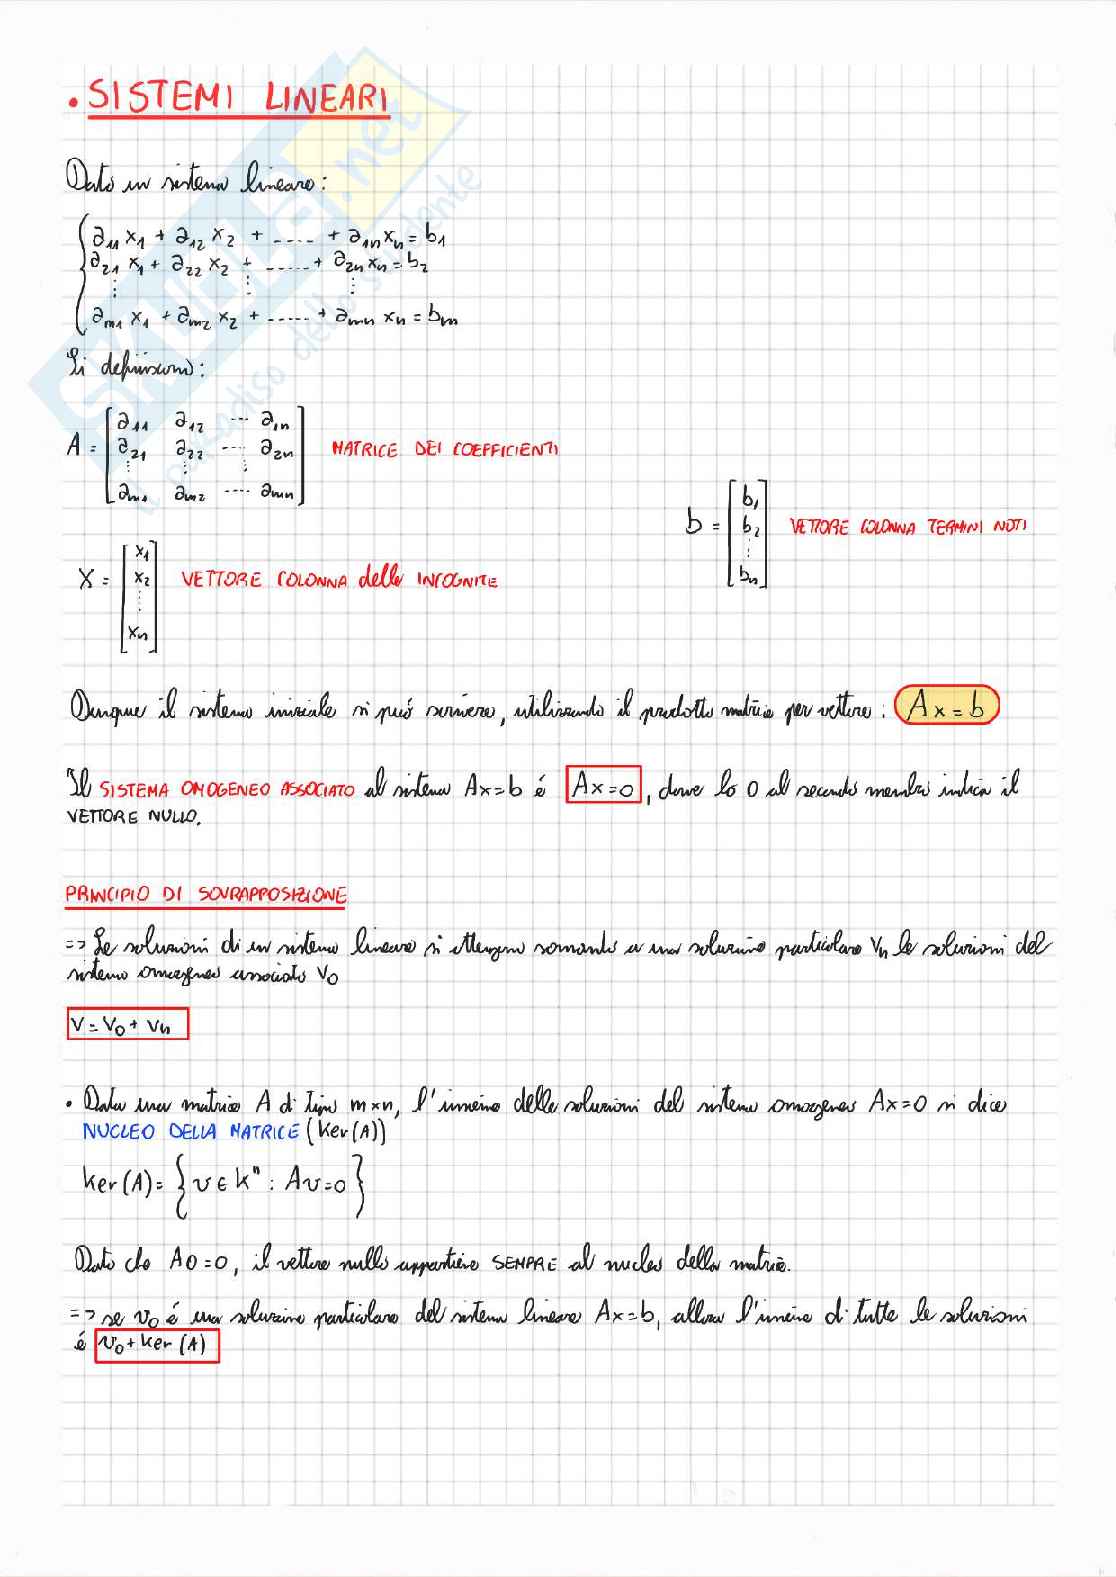 • SISTEMI LINEARI
Dato un sistema lineare:
a11 x1 + a12 x2 + ..... + a1n xn = b1
a21 x1 + a22 x2 + ...... + a2n xn = b2
⋮ ⋮ ⋮
am1 x1 + am2 x2 + ...... + amn xn = bm
Si definiscono:
A = [a11 a12 ... a1n
a21 a22 .... a2n
⋮ ⋮ ⋮
am1 am2 .... amn] MATRICE DEI COEFFICIENTI
b = [b1
b2
⋮
bn] VETTORE COLONNA TERMINI NOTI
X = [x1
x2
⋮
xn] VETTORE COLONNA delle INCOGNITE
Dunque il sistema iniziale si può scrivere, utilizzando il prodotto matrice per vettore: Ax=b
Il SISTEMA OMOGENEO ASSOCIATO al sistema Ax=b é Ax=0, dove lo 0 al secondo membro indica il
VETTORE NULLO.
PRINCIPIO DI SOVRAPPOSIZIONE
=> Le soluzioni di un sistema lineare si ottengono sommando a una soluzione particolare Vn le soluzioni del
sistema omogeneo associato V0
V = V0 + Vn
• Data una matrice A di tipo m×n, l'insieme delle soluzioni del sistema omogeneo Ax=0 si dice
NUCLEO DELLA MATRICE (Ker(A))
Ker(A) = {v ∈ K^n : Av=0}
Dato che A0=0, il vettore nullo appartiene SEMPRE al nucleo della matrice.
=> se v0 é una soluzione particolare del sistema lineare Ax=b, allora l'insieme di tutte le soluzioni
é v0 + Ker(A)
SKUOLA.net
il paradiso dello studente